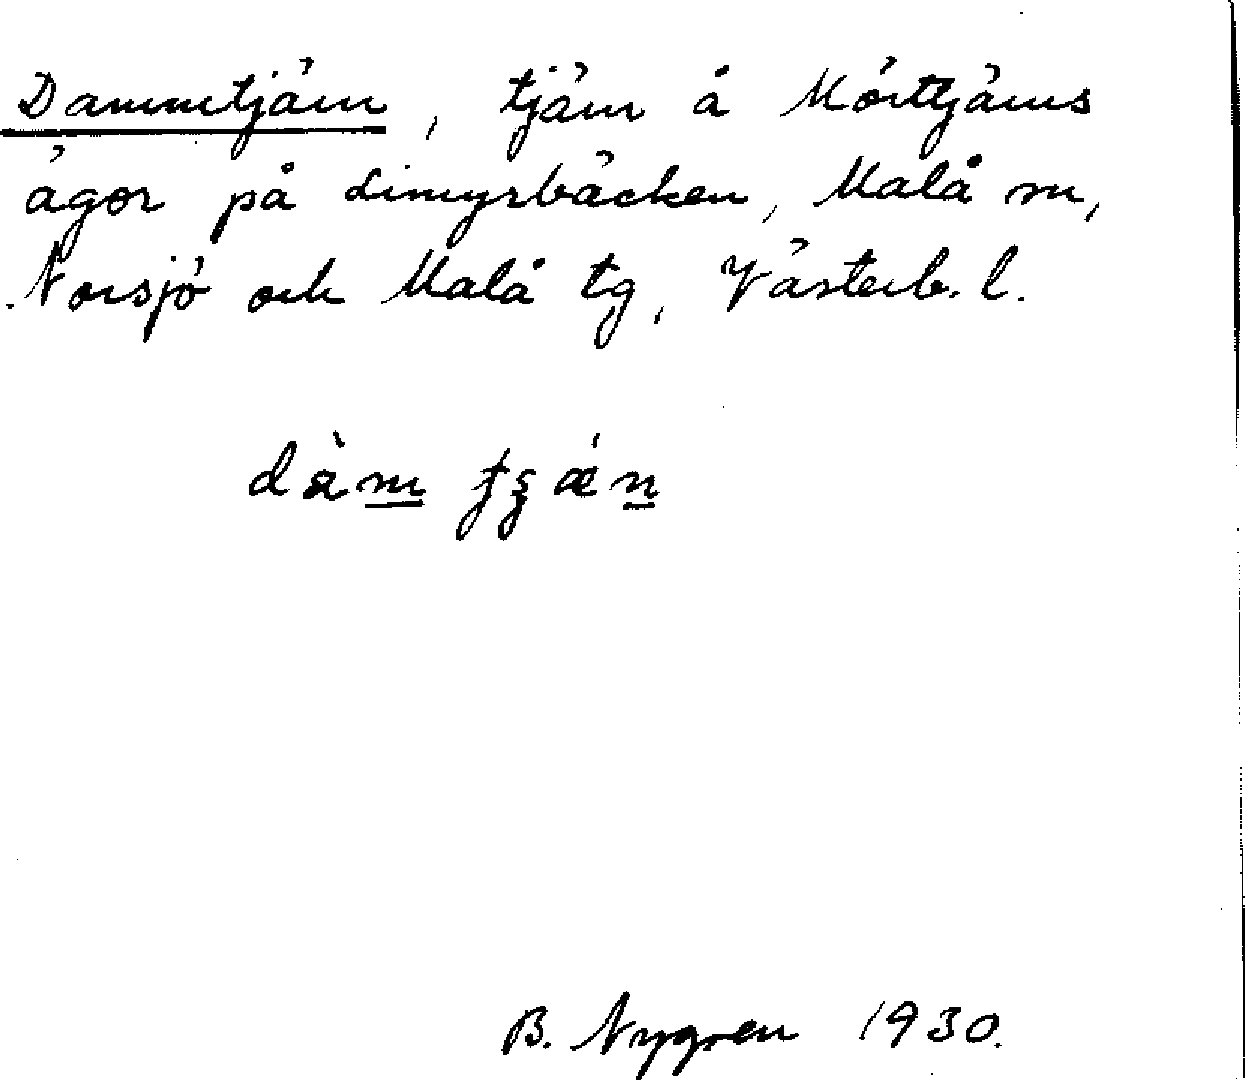 Dammtjärn, tjärn å Mörttjärns
ägor på Limyrbäcken, Malå sn,
Norsjö och Malå tg, Västerb. l.
dàm tʂǽn
B. Nygren 1930.